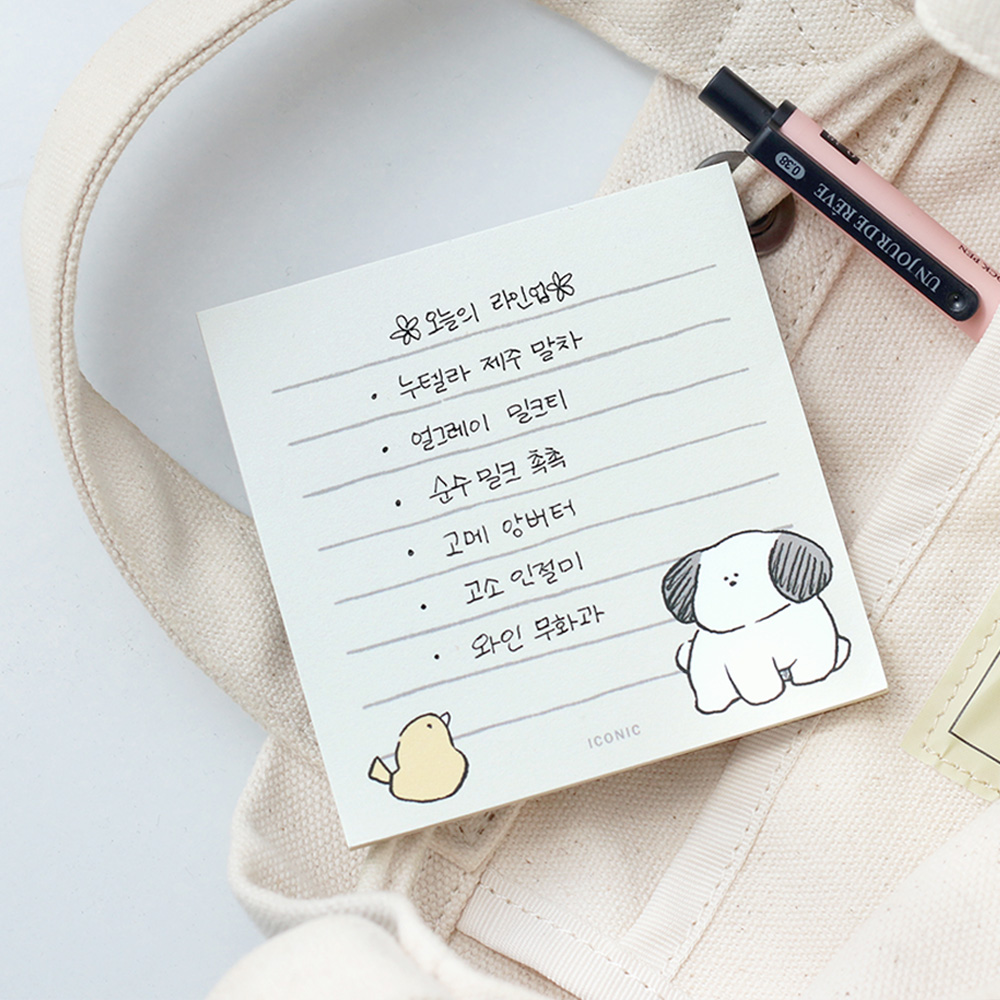 오늘의 라인업
• 누텔라 제주 말차
• 얼그레이 밀크티
• 순수 밀크 촉촉
• 고메 앙버터
• 고소 인절미
• 와인 무화과
ICONIC
0.38
UN JOUR DE RÊVE
CK PEN